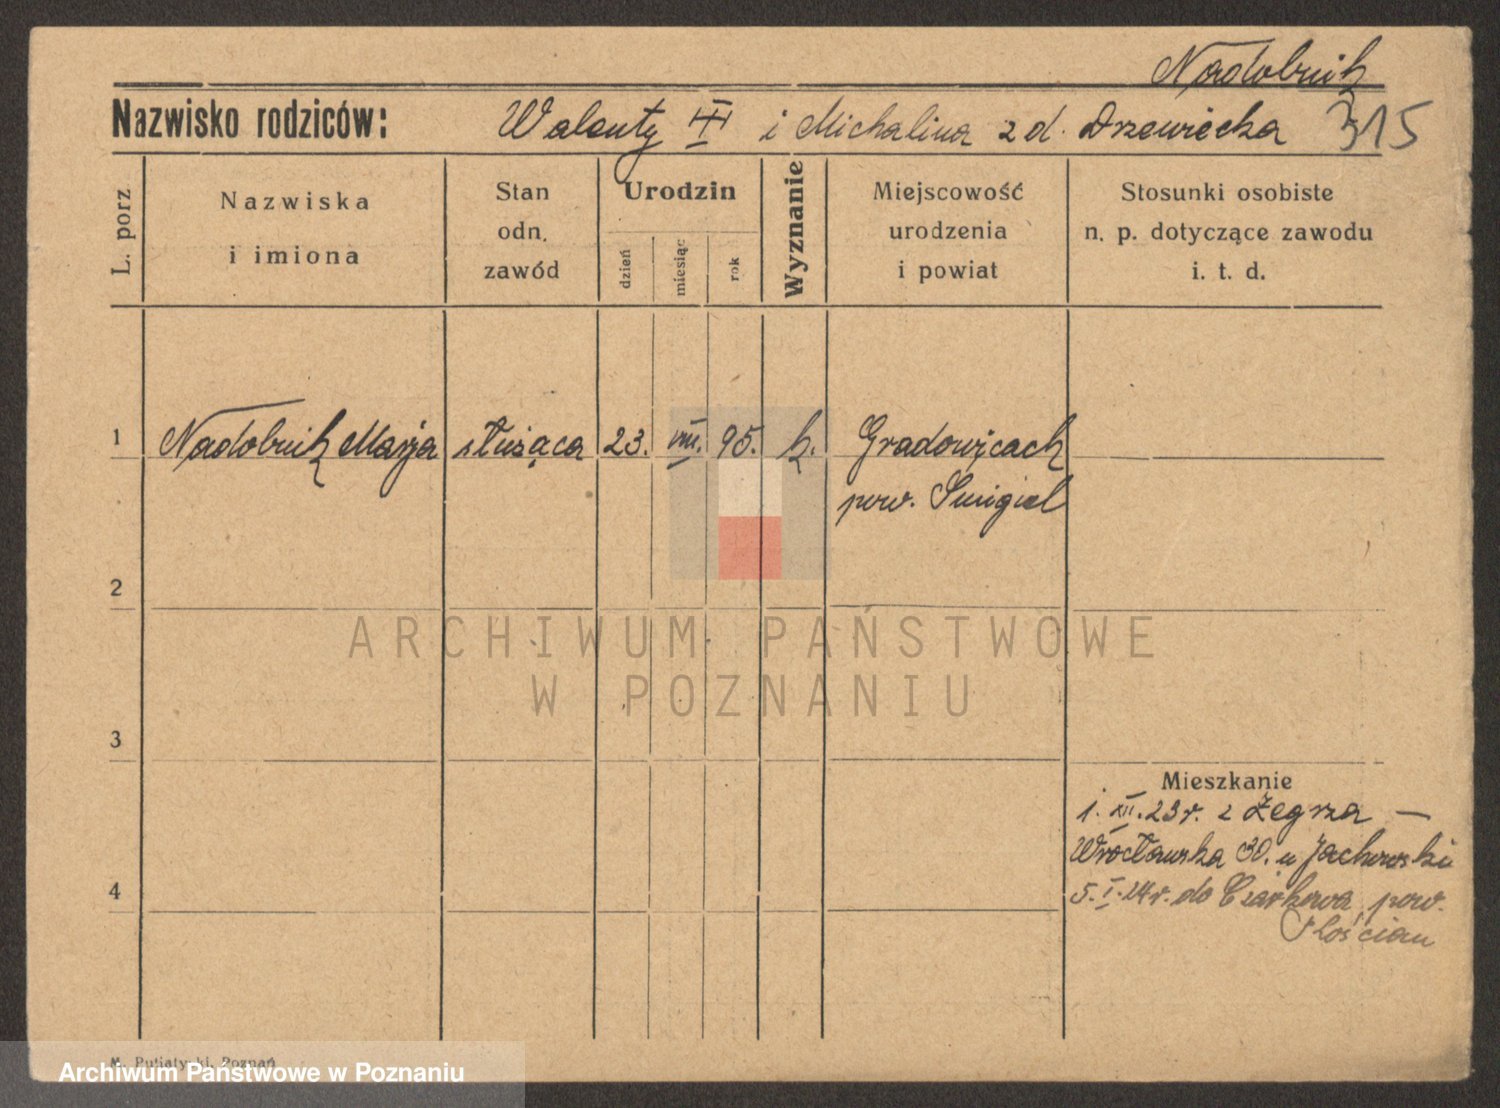 Nadobnik
Nazwisko rodziców: Walenty i Michalina z d. Drzewiecka 315
L. porz
Nazwiska
i imiona
Stan
odn.
zawód
Urodzin
dzień
miesiąc
rok
Wyznanie
Miejscowość
urodzenia
i powiat
Stosunki osobiste
n. p. dotyczące zawodu
i. t. d.
1 Nadobnik Marja służąca 23. VIII. 95. k. Gradowicach
pow. Śmigiel
2
ARCHIWUM PAŃSTWOWE
W POZNANIU
3
Mieszkanie
1. XII. 23 r. z Żegrza —
Wrocławska 30. u
4
5. I. 24 r. do pow.
Kościan
M. Putiatycki, Poznań
Archiwum Państwowe w Poznaniu